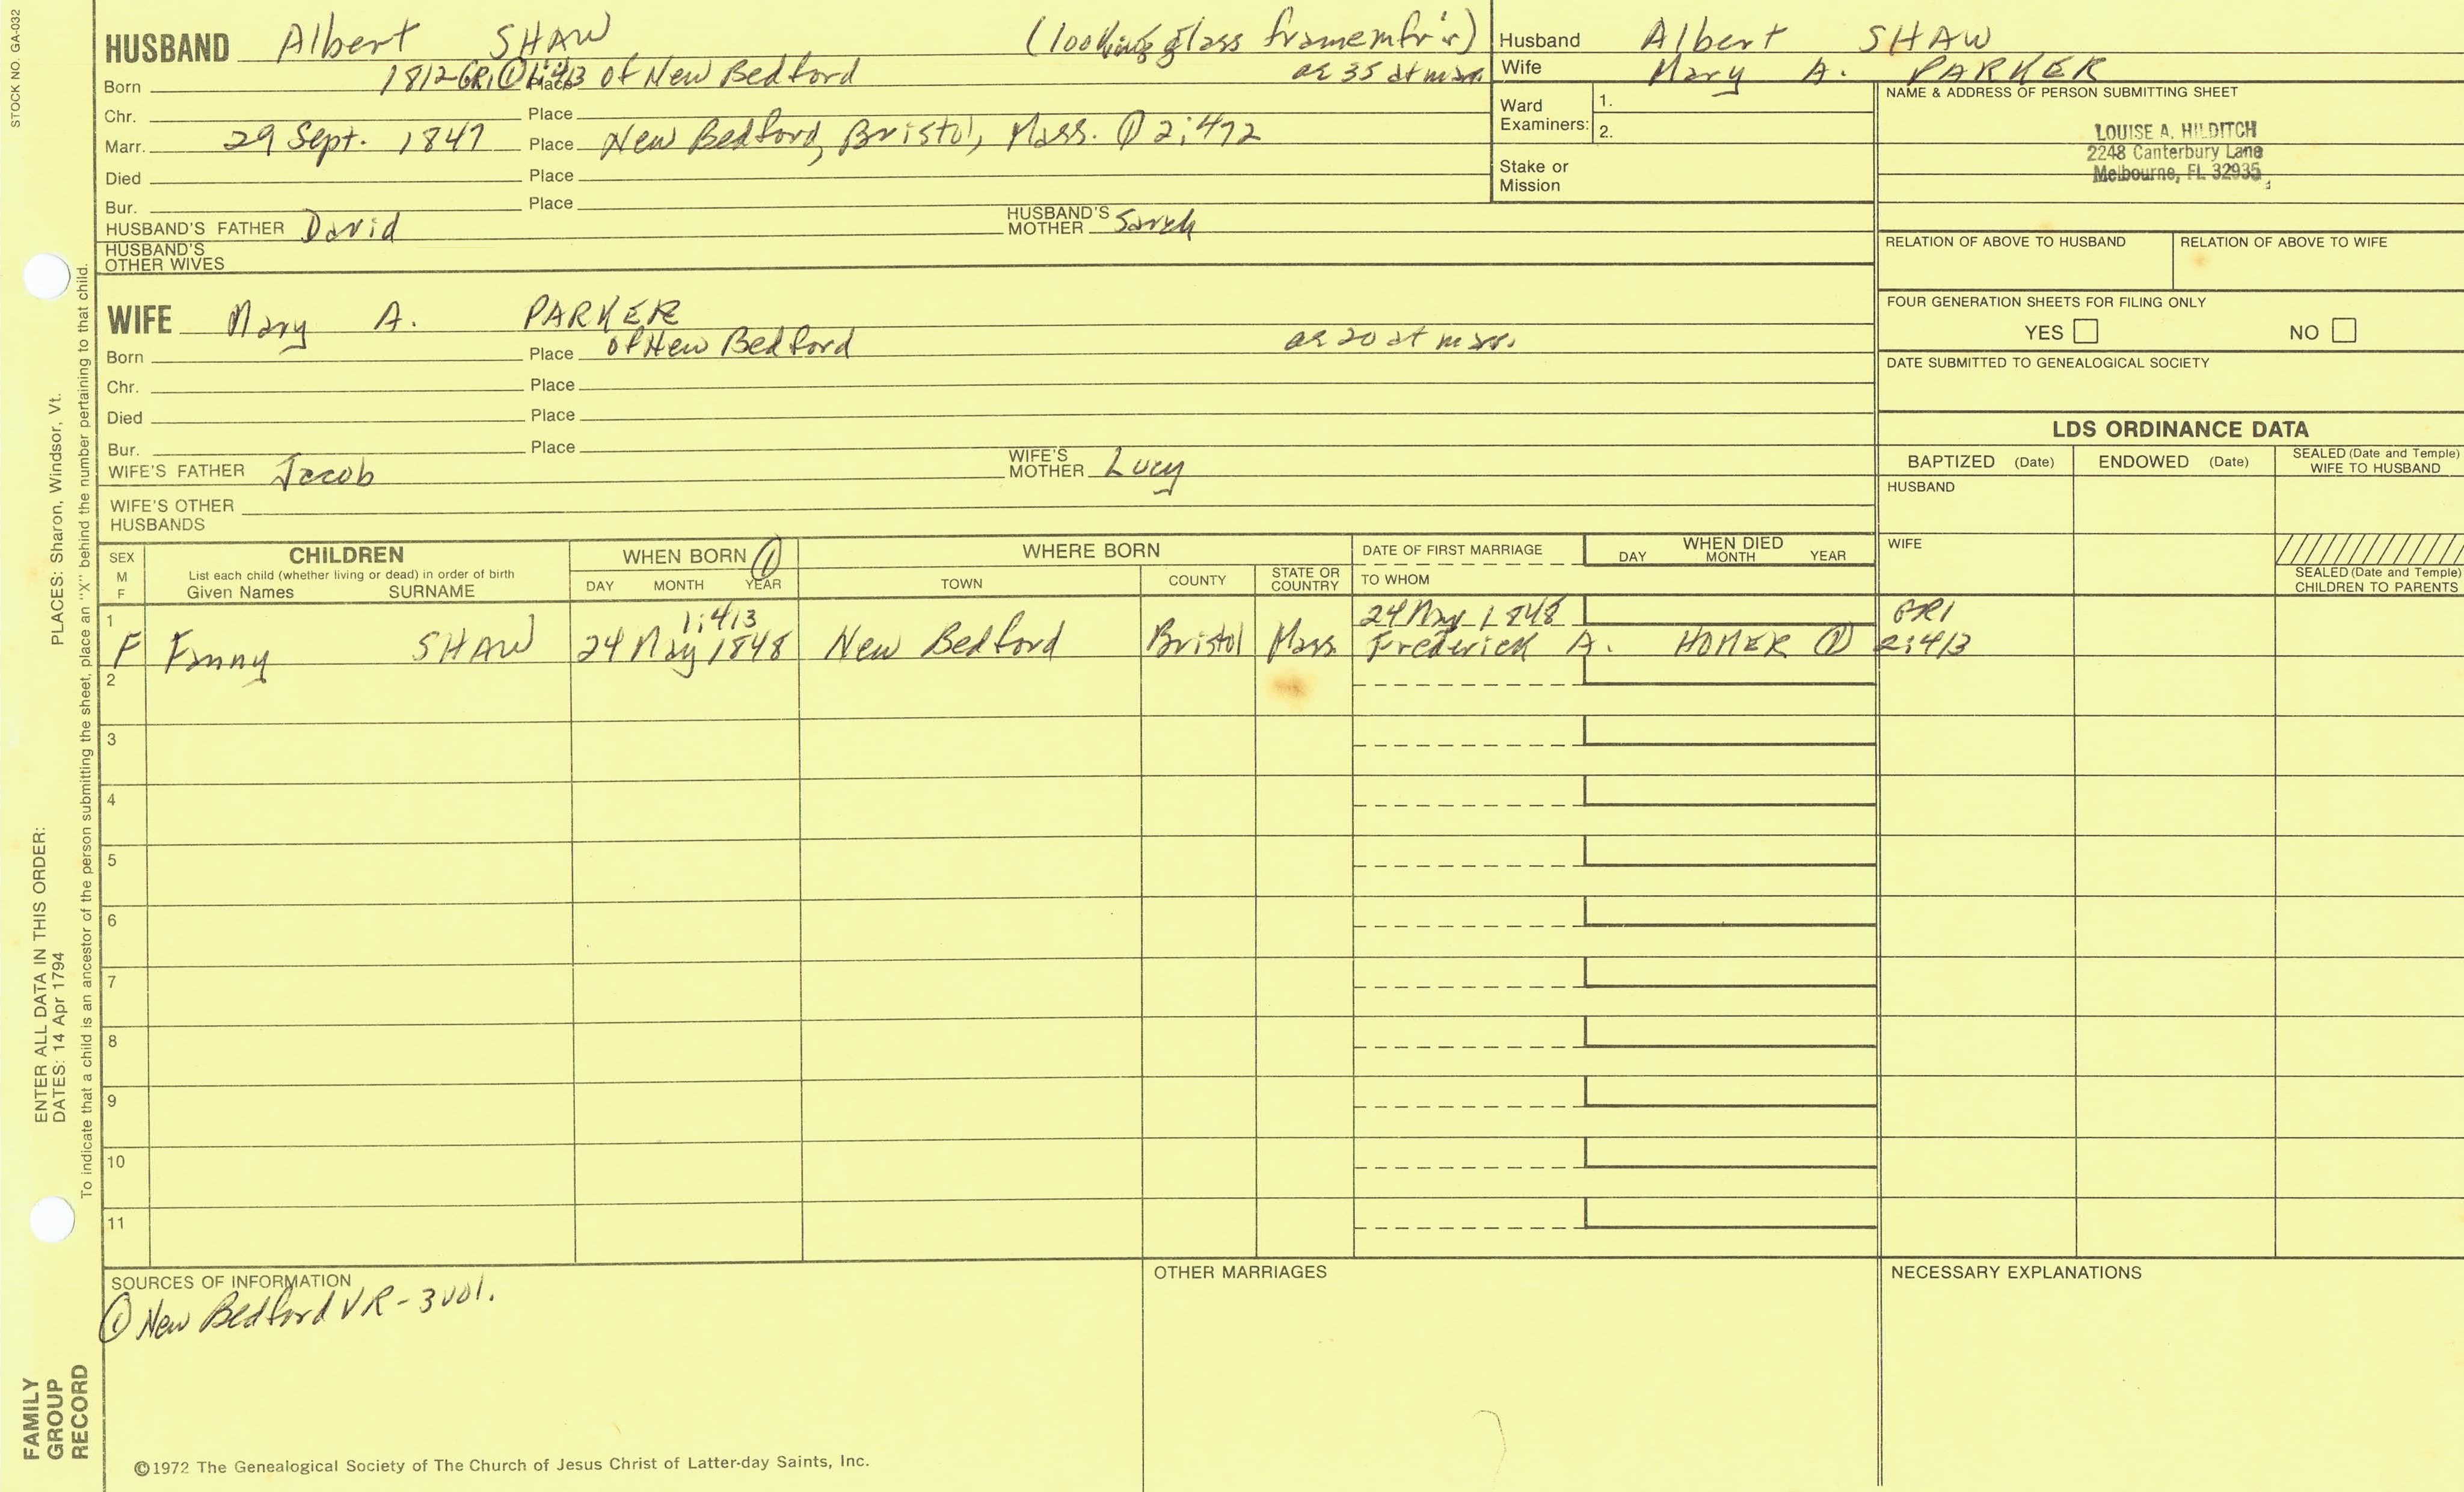 STOCK NO. GA-032
HUSBAND Albert SHAW (looking glass framemfr's)
Born 1812 GR1 ① 1:413 Place of New Bedford ae 35 at marr.
Chr. Place
Marr. 29 Sept. 1847 Place New Bedford, Bristol, Mass. ① 2:472
Died Place
Bur. Place
HUSBAND'S FATHER David HUSBAND'S MOTHER Sarah
HUSBAND'S OTHER WIVES
Husband Albert SHAW
Wife Mary A. PARKER
Ward Examiners: 1.
2.
Stake or Mission
NAME & ADDRESS OF PERSON SUBMITTING SHEET
LOUISE A. HILDITCH
2248 Canterbury Lane
Melbourne, FL 32935
RELATION OF ABOVE TO HUSBAND RELATION OF ABOVE TO WIFE
FOUR GENERATION SHEETS FOR FILING ONLY
YES NO
DATE SUBMITTED TO GENEALOGICAL SOCIETY
WIFE Mary A. PARKER
Born Place of New Bedford ae 20 at marr.
Chr. Place
Died Place
Bur. Place
WIFE'S FATHER Jacob WIFE'S MOTHER Lucy
WIFE'S OTHER HUSBANDS
LDS ORDINANCE DATA
BAPTIZED (Date) ENDOWED (Date) SEALED (Date and Temple) WIFE TO HUSBAND
HUSBAND
WIFE
SEALED (Date and Temple) CHILDREN TO PARENTS
SEX M F
CHILDREN
List each child (whether living or dead) in order of birth
Given Names SURNAME
WHEN BORN ①
DAY MONTH YEAR
WHERE BORN
TOWN COUNTY STATE OR COUNTRY
DATE OF FIRST MARRIAGE
TO WHOM
WHEN DIED
DAY MONTH YEAR
1 1:413 24 May 1848 GR1
F Fanny SHAW 24 May 1848 New Bedford Bristol Mass. Frederick A. HOMER ① 2:413
2
3
4
5
6
7
8
9
10
11
SOURCES OF INFORMATION
① New Bedford VR - 3 vol.
OTHER MARRIAGES
NECESSARY EXPLANATIONS
©1972 The Genealogical Society of The Church of Jesus Christ of Latter-day Saints, Inc.
FAMILY GROUP RECORD
ENTER ALL DATA IN THIS ORDER:
DATES: 14 Apr 1794
PLACES: Sharon, Windsor, Vt.
To indicate that a child is an ancestor of the person submitting the sheet, place an "X" behind the number pertaining to that child.